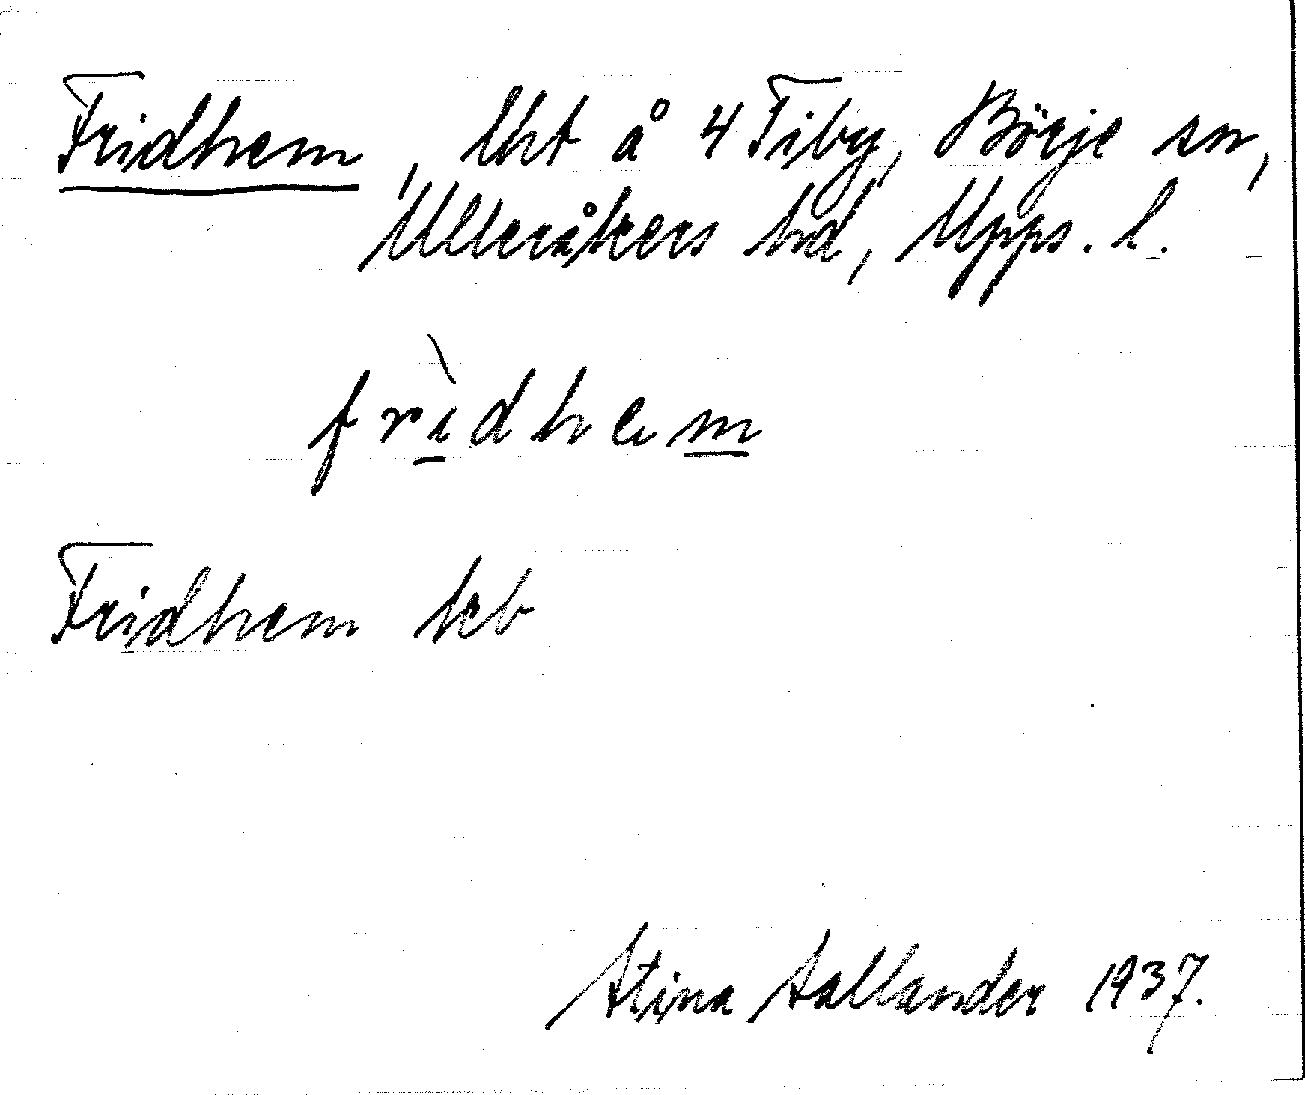 Fridhem, lht å 4 Tiby, Börje sn,
Ulleråkers hd, Upps. l.
frìdhem
Fridhem kb
Stina Sallander 1937.